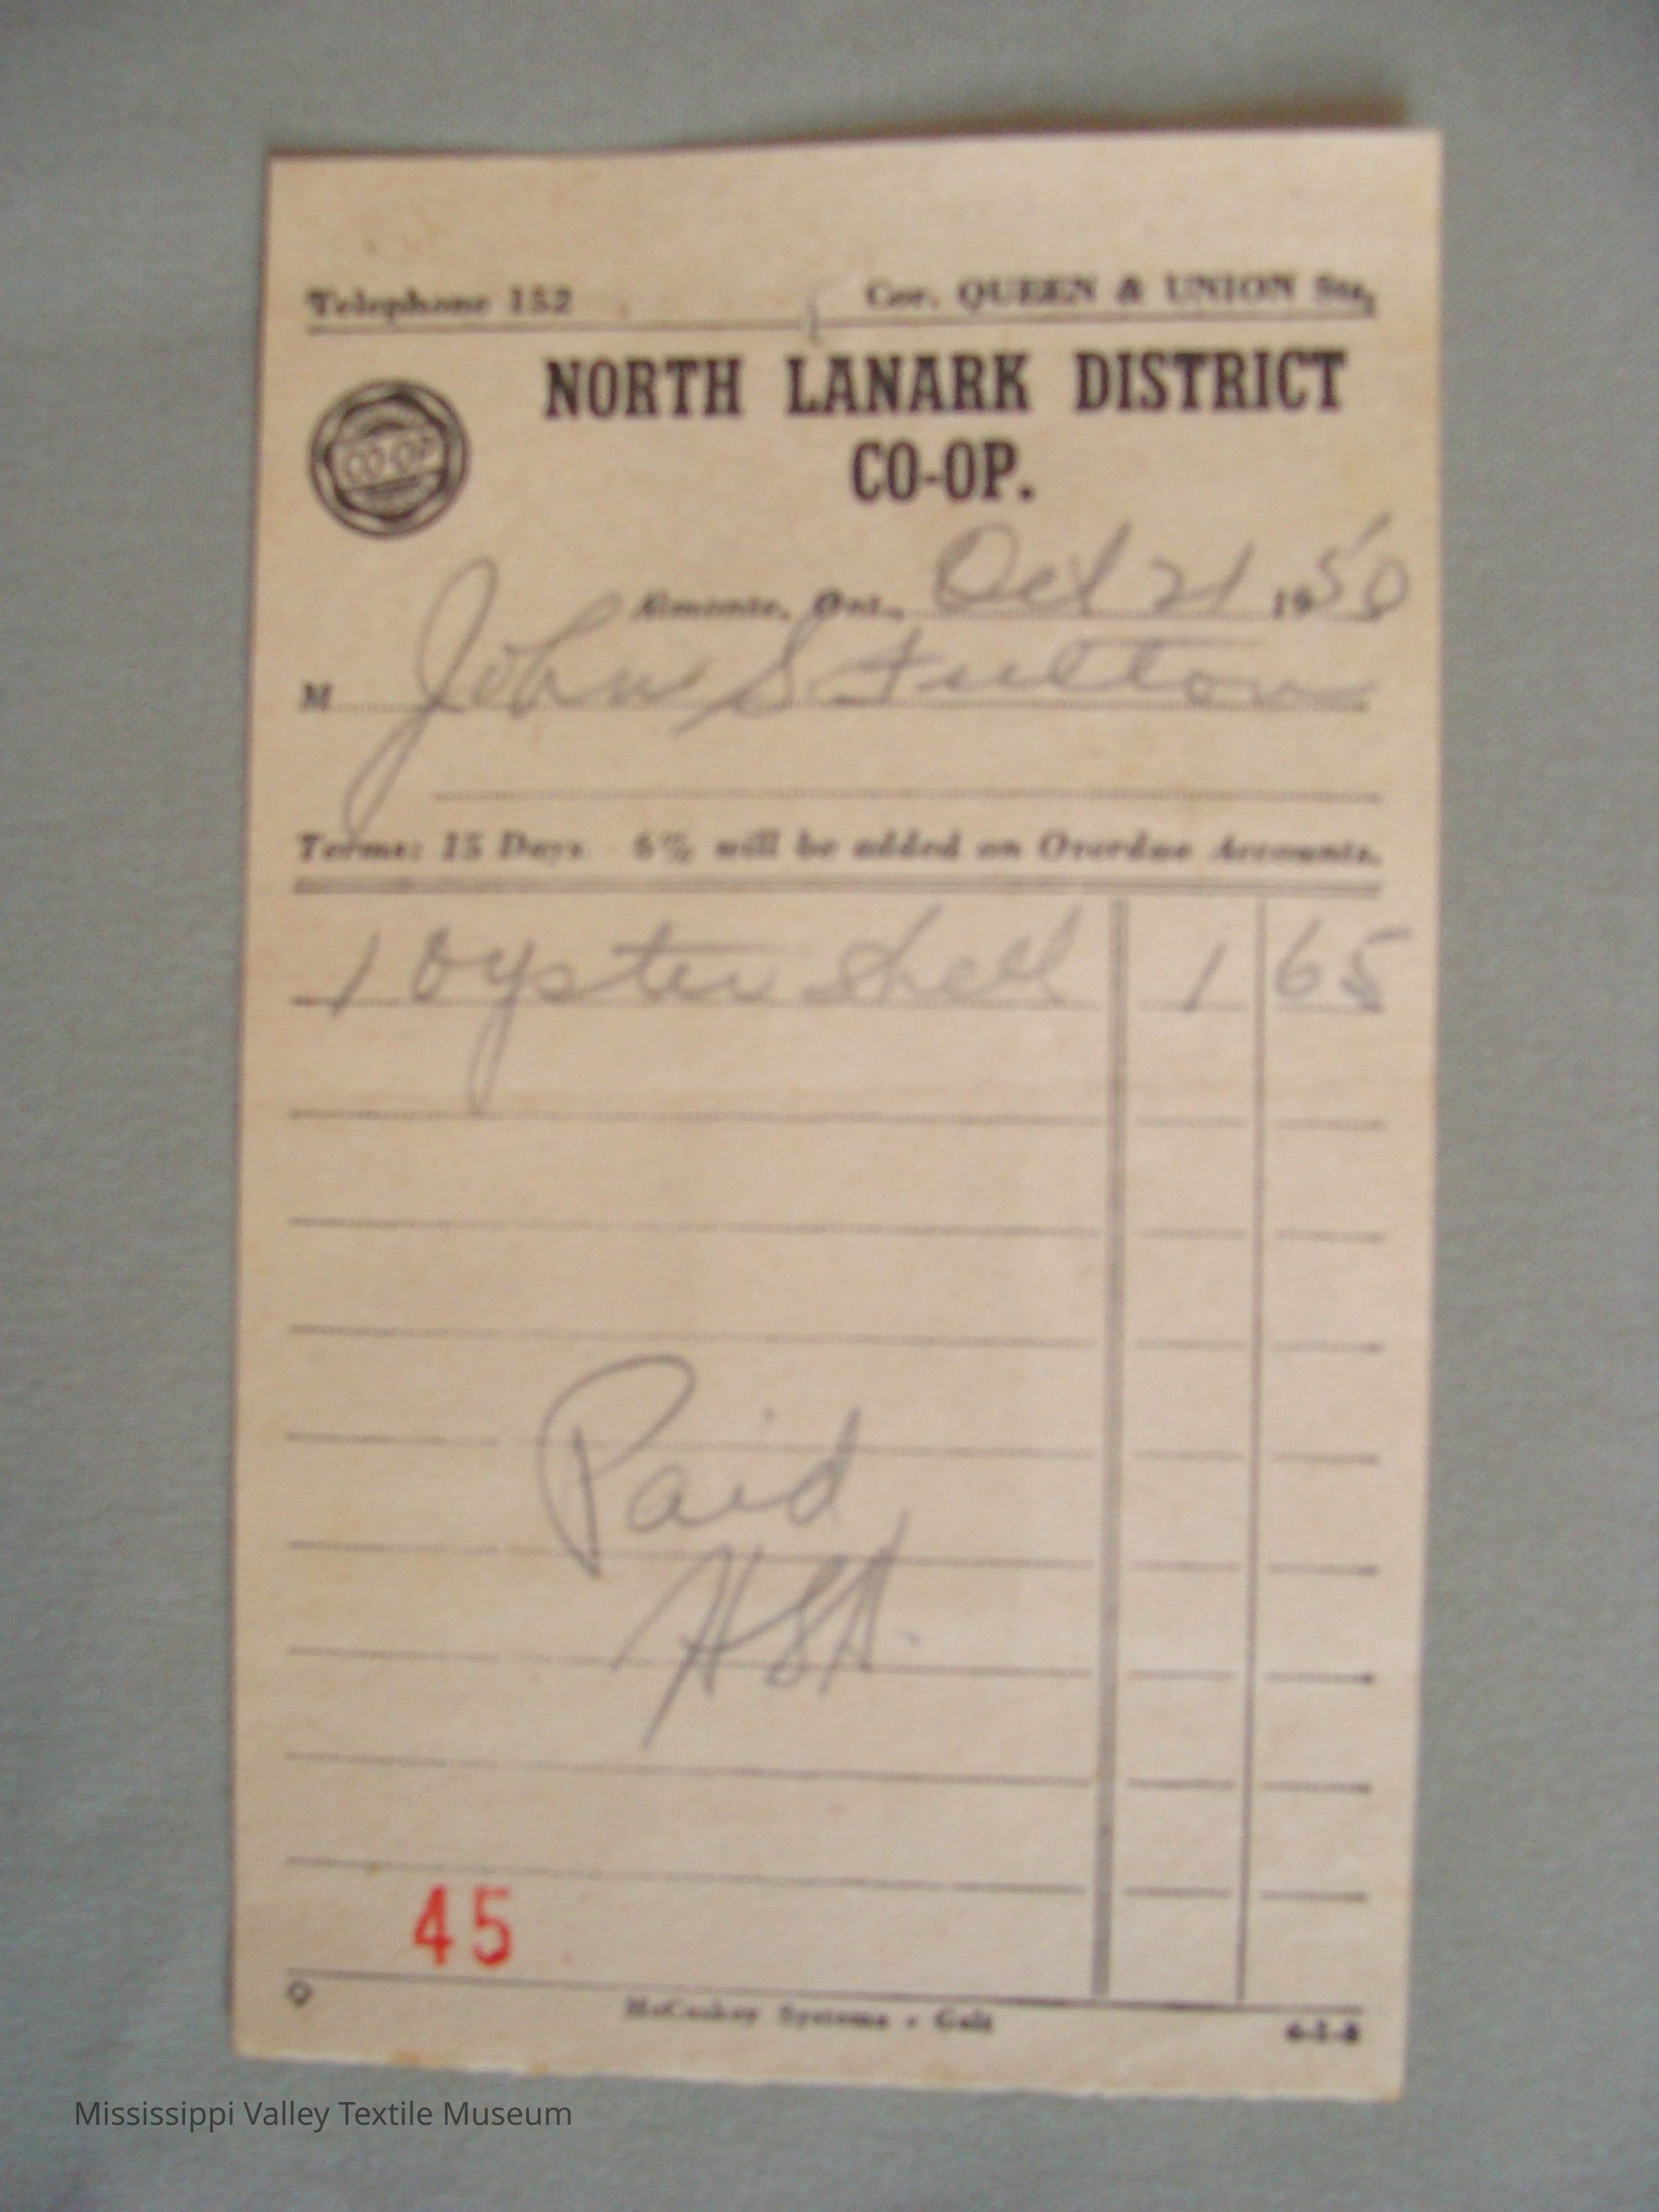 Telephone 152 Cor. QUEEN & UNION Sts.
NORTH LANARK DISTRICT
CO-OP.
CO-OP
Almonte, Ont., Oct 21 1950
M John S Fulton
Terms: 15 Days 6% will be added on Overdue Accounts.
1 Oyster shell 1 65
Paid
45
McCaskey Systems - Galt
Mississippi Valley Textile Museum